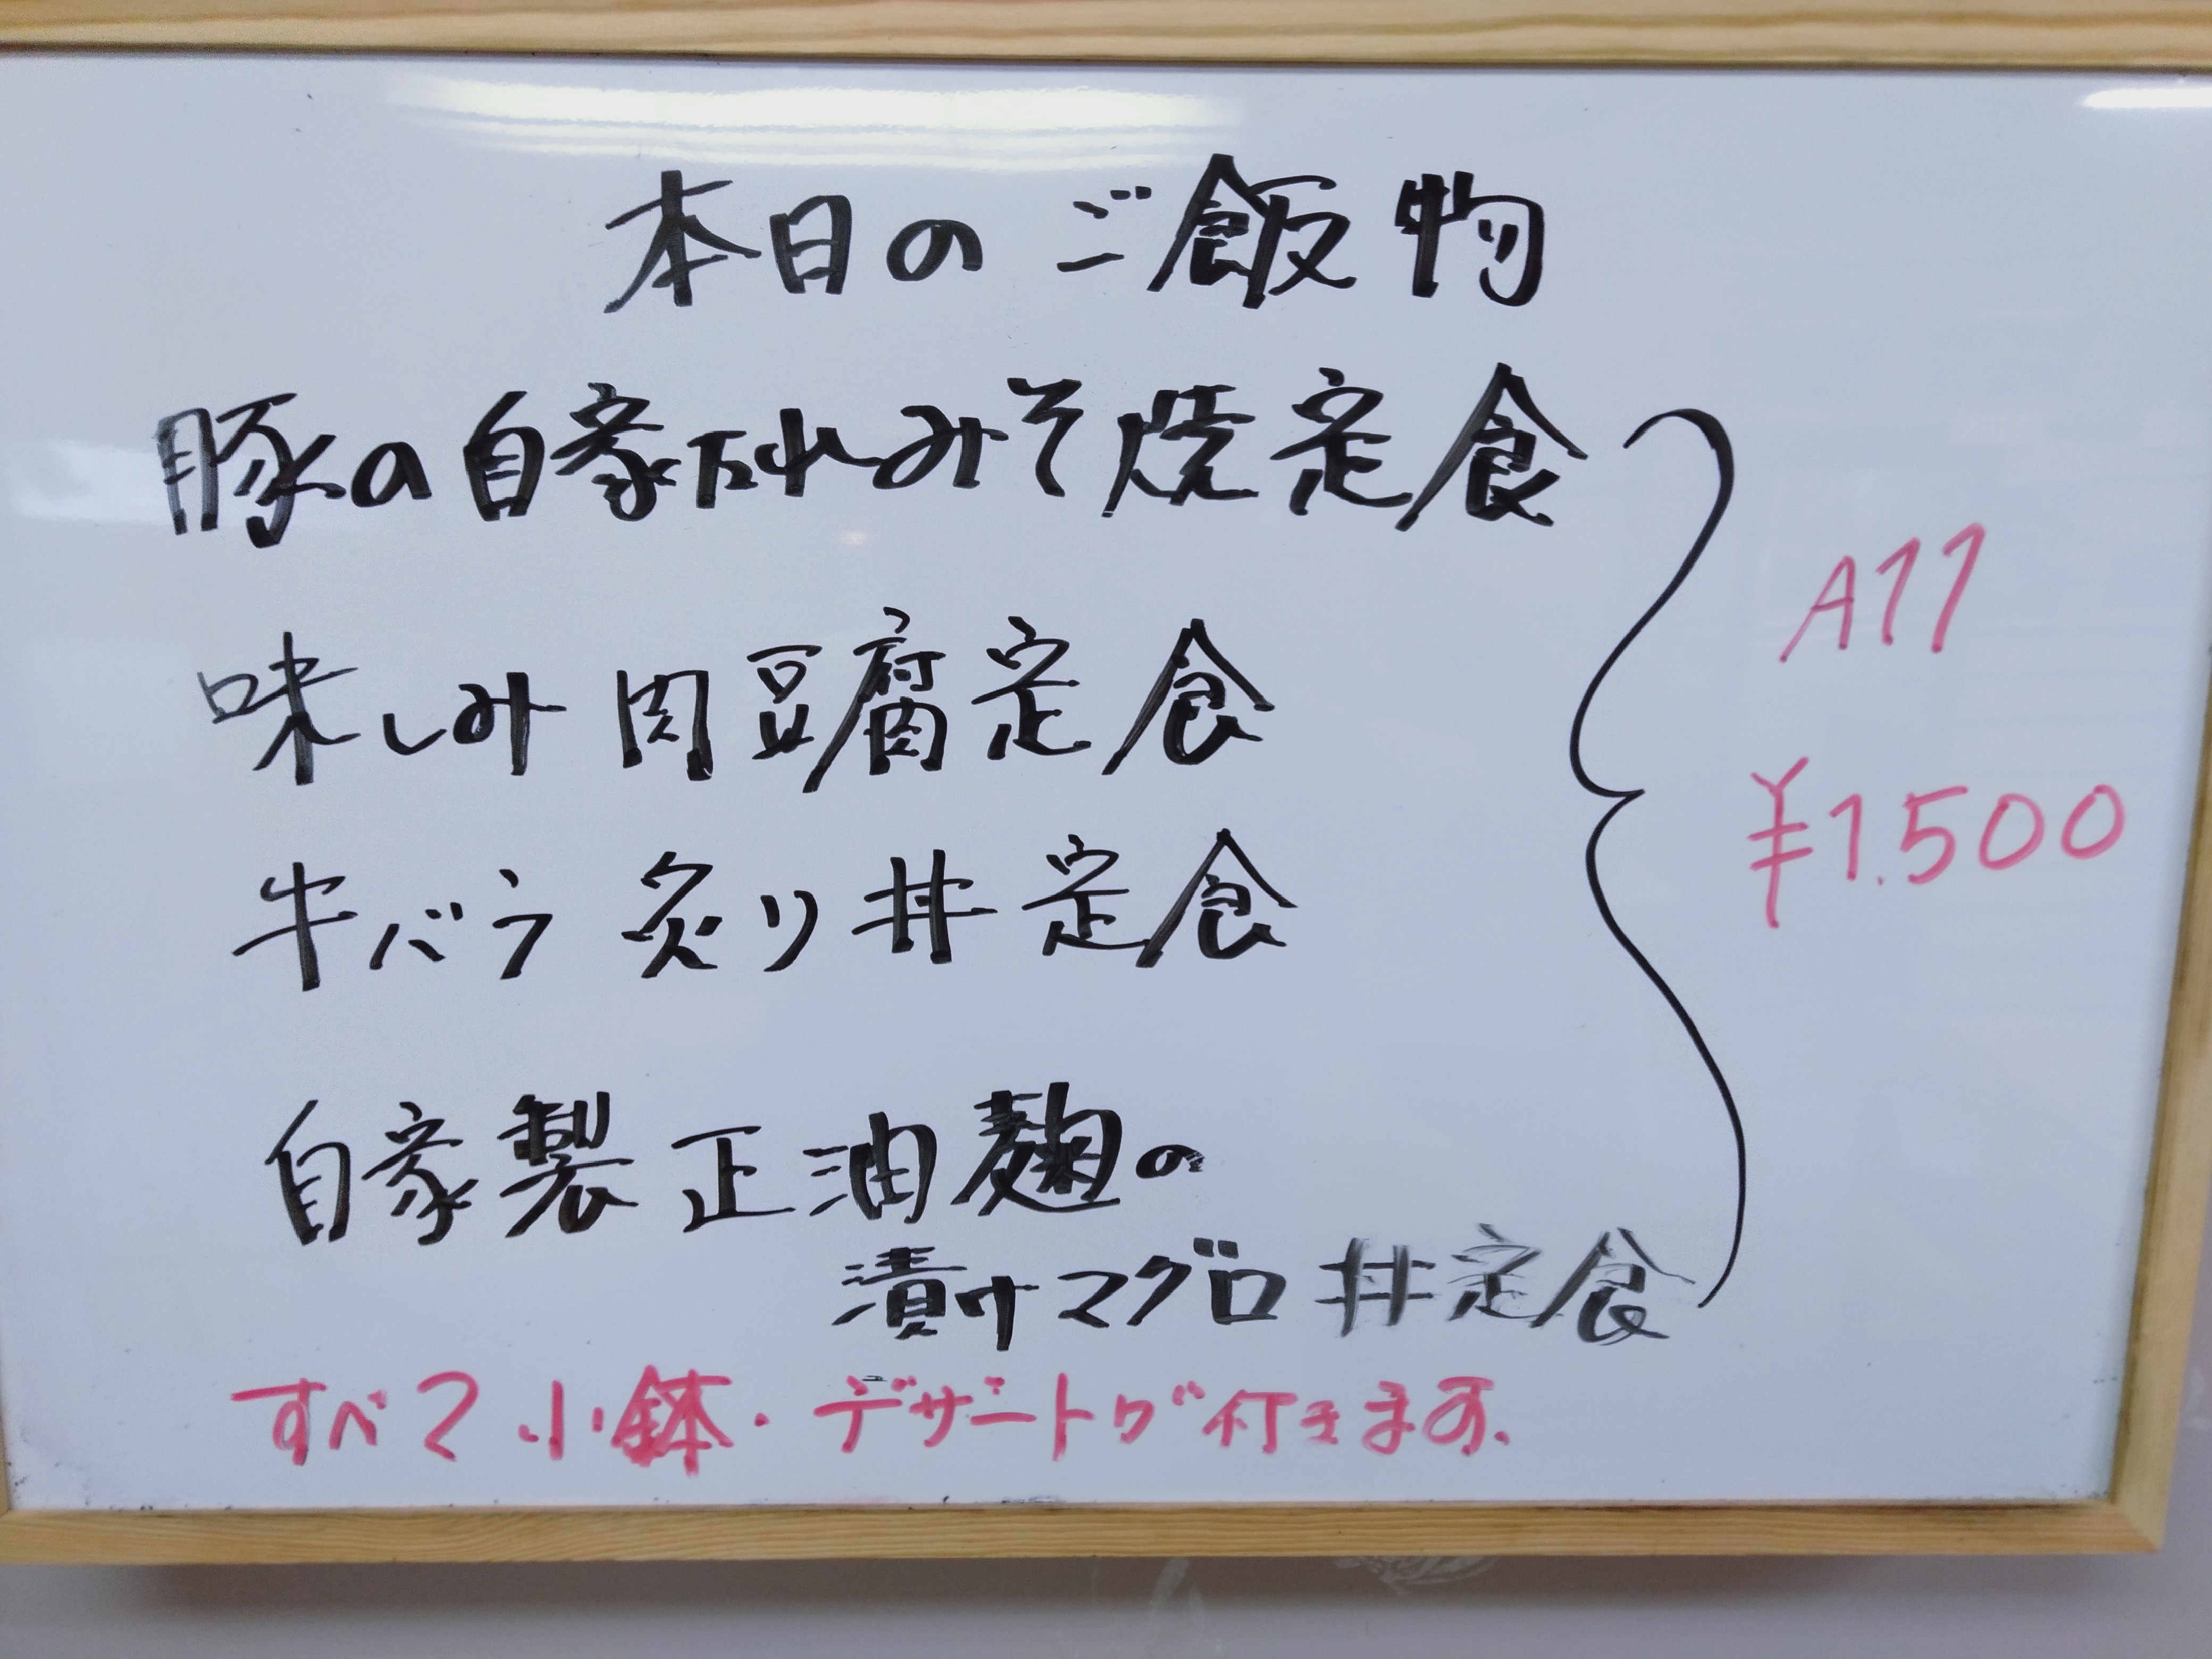 本日のご飯物
豚の自家だれみそ焼定食
味しみ肉豆腐定食
牛バラ炙り丼定食
自家製正油麹の
漬けマグロ丼定食
All
¥1.500
すべて小鉢・デザートが付きます。